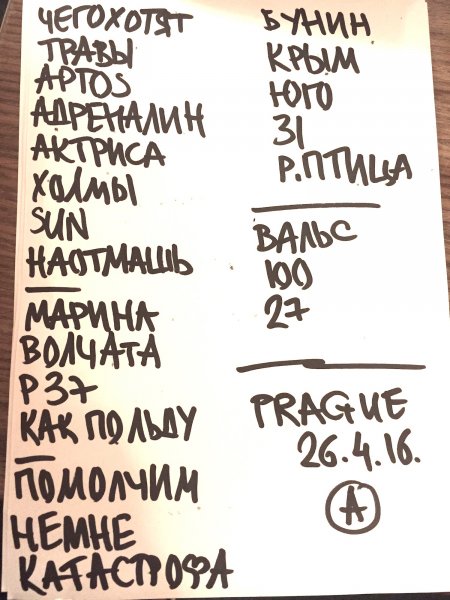 ЧЕГО ХОТЯТ
ТРАВЫ
APTOS
АДРЕНАЛИН
АКТРИСА
ХОЛМЫ
SUN
НАОТМАШЬ
МАРИНА
ВОЛЧАТА
Р 37
КАК ПО ЛЬДУ
ПОМОЛЧИМ
НЕ МНЕ
КАТАСТРОФА
БУНИН
КРЫМ
ЮГО
31
Р.ПТИЦА
ВАЛЬС
100
27
PRAGUE
26.4.16.
A